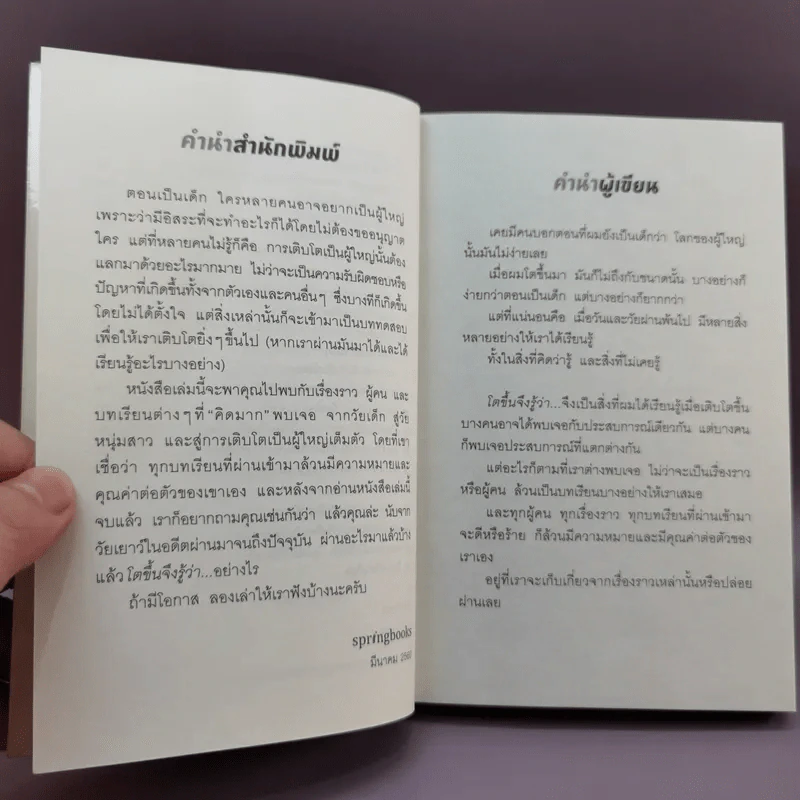 คำนำสำนักพิมพ์
ตอนเป็นเด็ก ใครหลายคนอาจอยากเป็นผู้ใหญ่
เพราะว่ามีอิสระที่จะทำอะไรก็ได้โดยไม่ต้องขออนุญาต
ใคร แต่ที่หลายคนไม่รู้ก็คือ การเติบโตเป็นผู้ใหญ่นั้นต้อง
แลกมาด้วยอะไรมากมาย ไม่ว่าจะเป็นความรับผิดชอบหรือ
ปัญหาที่เกิดขึ้นทั้งจากตัวเองและคนอื่นๆ ซึ่งบางทีก็เกิดขึ้น
โดยไม่ได้ตั้งใจ แต่สิ่งเหล่านั้นก็จะเข้ามาเป็นบททดสอบ
เพื่อให้เราเติบโตยิ่งๆ ขึ้นไป (หากเราผ่านมันมาได้และได้
เรียนรู้อะไรบางอย่าง)
หนังสือเล่มนี้จะพาคุณไปพบกับเรื่องราว ผู้คน และ
บทเรียนต่างๆ ที่ "คิดมาก" พบเจอ จากวัยเด็ก สู่วัย
หนุ่มสาว และสู่การเติบโตเป็นผู้ใหญ่เต็มตัว โดยที่เขา
เชื่อว่า ทุกบทเรียนที่ผ่านเข้ามาล้วนมีความหมายและ
คุณค่าต่อตัวของเขาเอง และหลังจากอ่านหนังสือเล่มนี้
จบแล้ว เราก็อยากถามคุณเช่นกันว่า แล้วคุณล่ะ นับจาก
วัยเยาว์ในอดีตผ่านมาจนถึงปัจจุบัน ผ่านอะไรมาแล้วบ้าง
แล้ว โตขึ้นจึงรู้ว่า...อย่างไร
ถ้ามีโอกาส ลองเล่าให้เราฟังบ้างนะครับ
springbooks
มีนาคม
คำนำผู้เขียน
เคยมีคนบอกตอนที่ผมยังเป็นเด็กว่า โลกของผู้ใหญ่
นั้นมันไม่ง่ายเลย
เมื่อผมโตขึ้นมา มันก็ไม่ถึงกับขนาดนั้น บางอย่างก็
ง่ายกว่าตอนเป็นเด็ก แต่บางอย่างก็ยากกว่า
แต่ที่แน่นอนคือ เมื่อวันและวัยผ่านพ้นไป มีหลายสิ่ง
หลายอย่างให้เราได้เรียนรู้
ทั้งในสิ่งที่คิดว่ารู้ และสิ่งที่ไม่เคยรู้
โตขึ้นจึงรู้ว่า...จึงเป็นสิ่งที่ผมได้เรียนรู้เมื่อเติบโตขึ้น
บางคนอาจได้พบเจอกับประสบการณ์เดียวกัน แต่บางคน
ก็พบเจอประสบการณ์ที่แตกต่างกัน
แต่อะไรก็ตามที่เราต่างพบเจอ ไม่ว่าจะเป็นเรื่องราว
หรือผู้คน ล้วนเป็นบทเรียนบางอย่างให้เราเสมอ
และทุกผู้คน ทุกเรื่องราว ทุกบทเรียนที่ผ่านเข้ามา
จะดีหรือร้าย ก็ล้วนมีความหมายและมีคุณค่าต่อตัวของ
เราเอง
อยู่ที่เราจะเก็บเกี่ยวจากเรื่องราวเหล่านั้นหรือปล่อย
ผ่านเลย